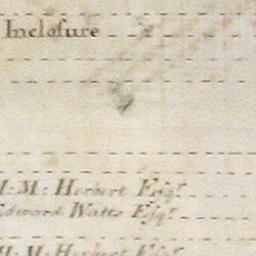 Inclosure
H: M: Herbert Esqr.
Edward Watts Esqr.
H: M: Herbert Esqr.